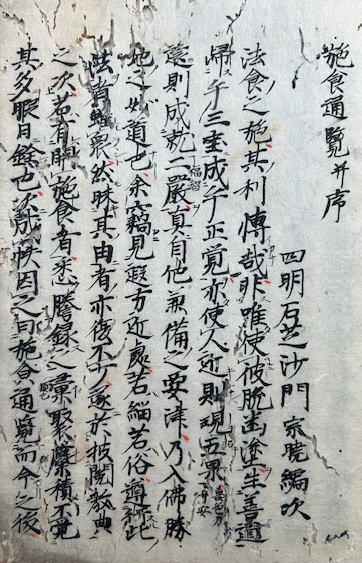 施食通覧并序
四明石芝沙門 宗曉編次
法食之施其利博哉非唯使彼脱幽塗生善道
歸于三宝成于正覚亦使人近則現五果
遠則成就二嚴真自他兼備之要津乃入佛勝
地之妙道也余竊見遐方近處若緇若俗遵行此
法者雖衆然昧其由者亦復不少遂於披閲教典
之次若有關施食者悉謄録之彙聚屢積不覚
其多暇日録也成帙因之曰施食通覧而今之後